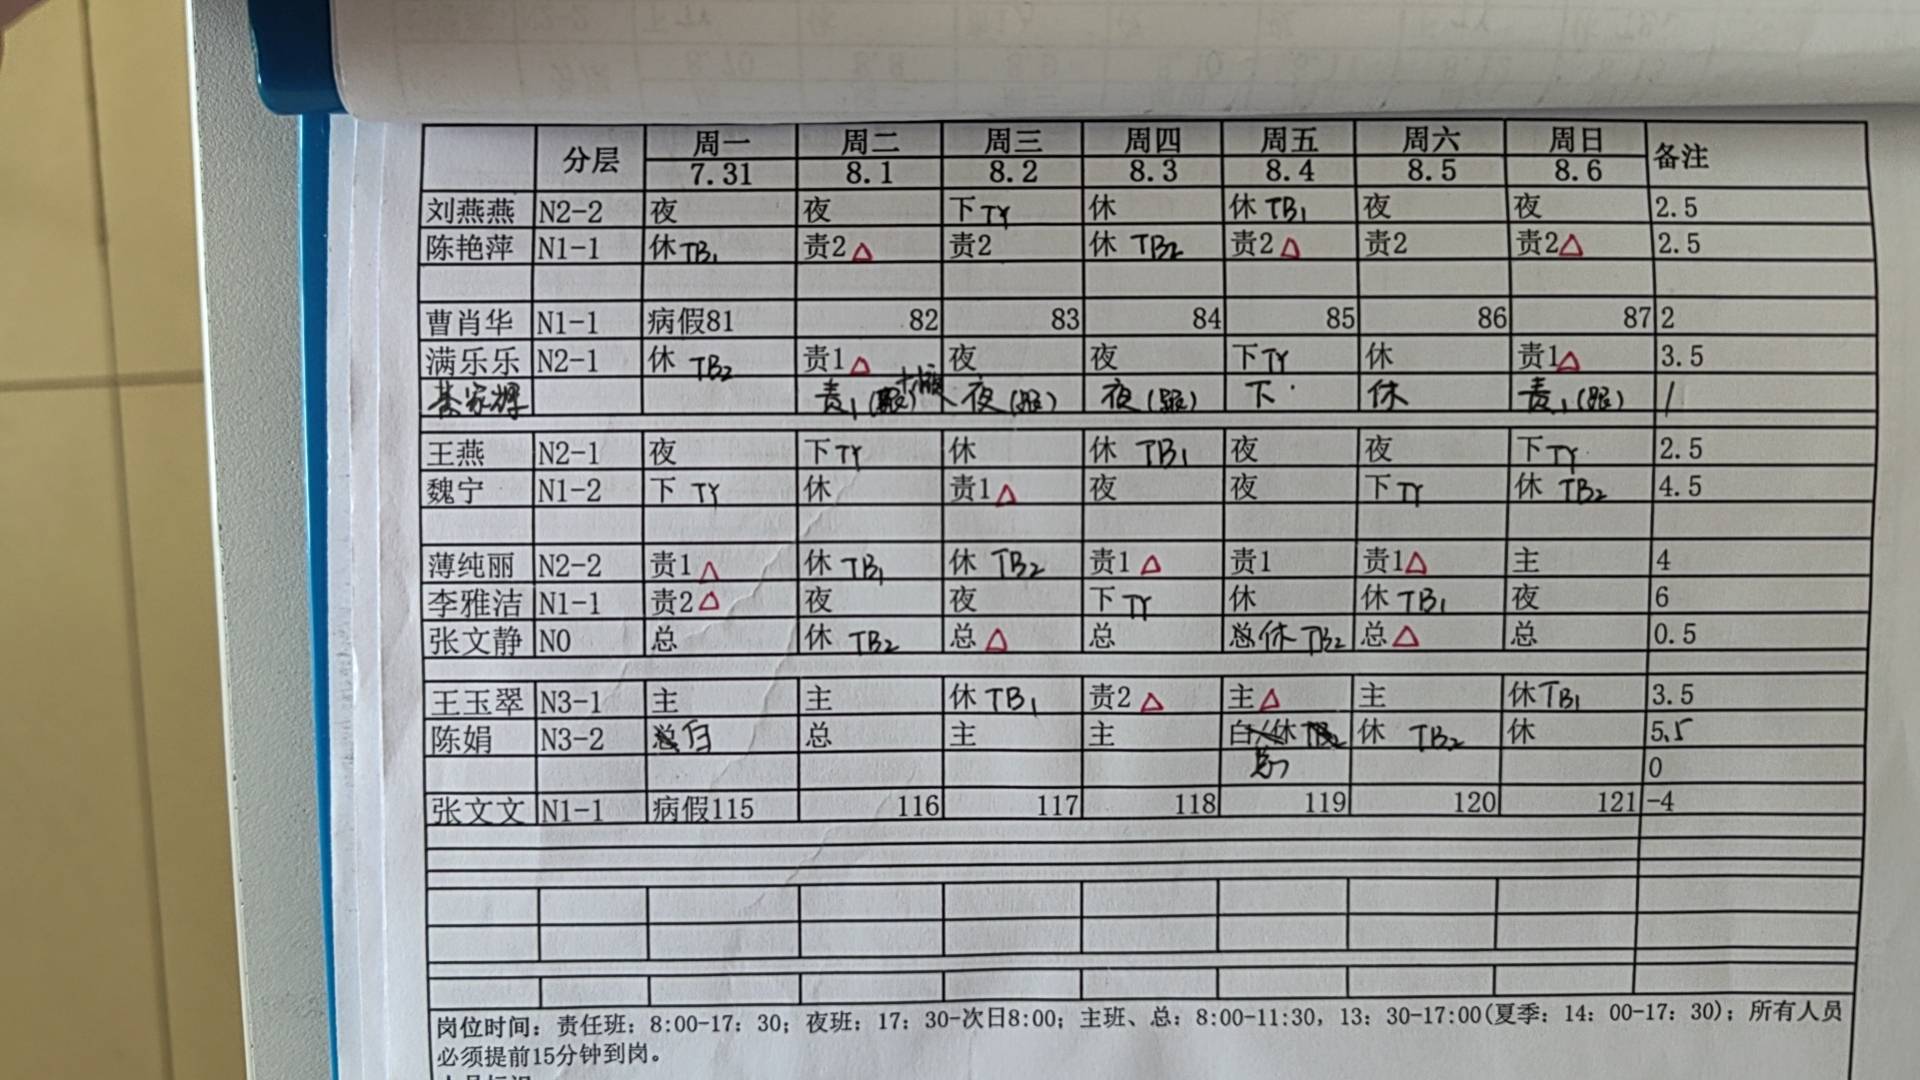 分层 周一 周二 周三 周四 周五 周六 周日 备注
7.31 8.1 8.2 8.3 8.4 8.5 8.6
刘燕燕 N2-2 夜 夜 下TY 休 休TB1 夜 夜 2.5
陈艳萍 N1-1 休TB1 责2△ 责2 休 TB2 责2△ 责2 责2△ 2.5
曹肖华 N1-1 病假81 82 83 84 85 86 87 2
满乐乐 N2-1 休 TB2 责1△ 夜 夜 下TY 休 责1△ 3.5
家辉 责1(跟) 夜(跟) 夜(跟) 下 休 责1(跟) /
王燕 N2-1 夜 下TY 休 休 TB1 夜 夜 下TY 2.5
魏宁 N1-2 下 TY 休 责1△ 夜 夜 下TY 休 TB2 4.5
薄纯丽 N2-2 责1△ 休 TB1 休 TB2 责1△ 责1 责1△ 主 4
李雅洁 N1-1 责2△ 夜 夜 下TY 休 休 TB1 夜 6
张文静 N0 总 休 TB2 总△ 总 总休 TB2 总△ 总 0.5
王玉翠 N3-1 主 主 休TB1 责2△ 主△ 主 休TB1 3.5
陈娟 N3-2 总白 总 主 主 白休TB2 休 TB2 休 5.5
总 0
张文文 N1-1 病假115 116 117 118 119 120 121 -4
岗位时间：责任班：8:00-17：30；夜班：17：30-次日8:00；主班、总：8:00-11:30，13：30-17:00(夏季：14：00-17：30)；所有人员
必须提前15分钟到岗。